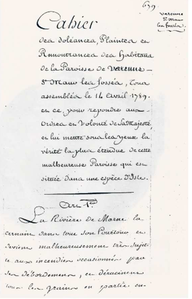 639
varenne
St maur
les fossés
Cahier
des doléances, Plaintes et
Remontrances des Habitans
de la Paroisse de Varenne
St Maur les fossés, Tous
assemblés le 14 avril 1789.
et ce, pour repondre aux
ordres et Volonté de Sa Majesté
et lui mettre sous les yeux la
vérité la plus étendue de cette
malheureuse Paroisse qui est
située dans une espèce d'Isle.
Art. 1er
La Rivière de Marne la
cernant dans tout son Pourtour
et devient malheureusement très sujette
aux inondations occasionnées par
ses débordemens, et déracinens
tous les grains en partie en